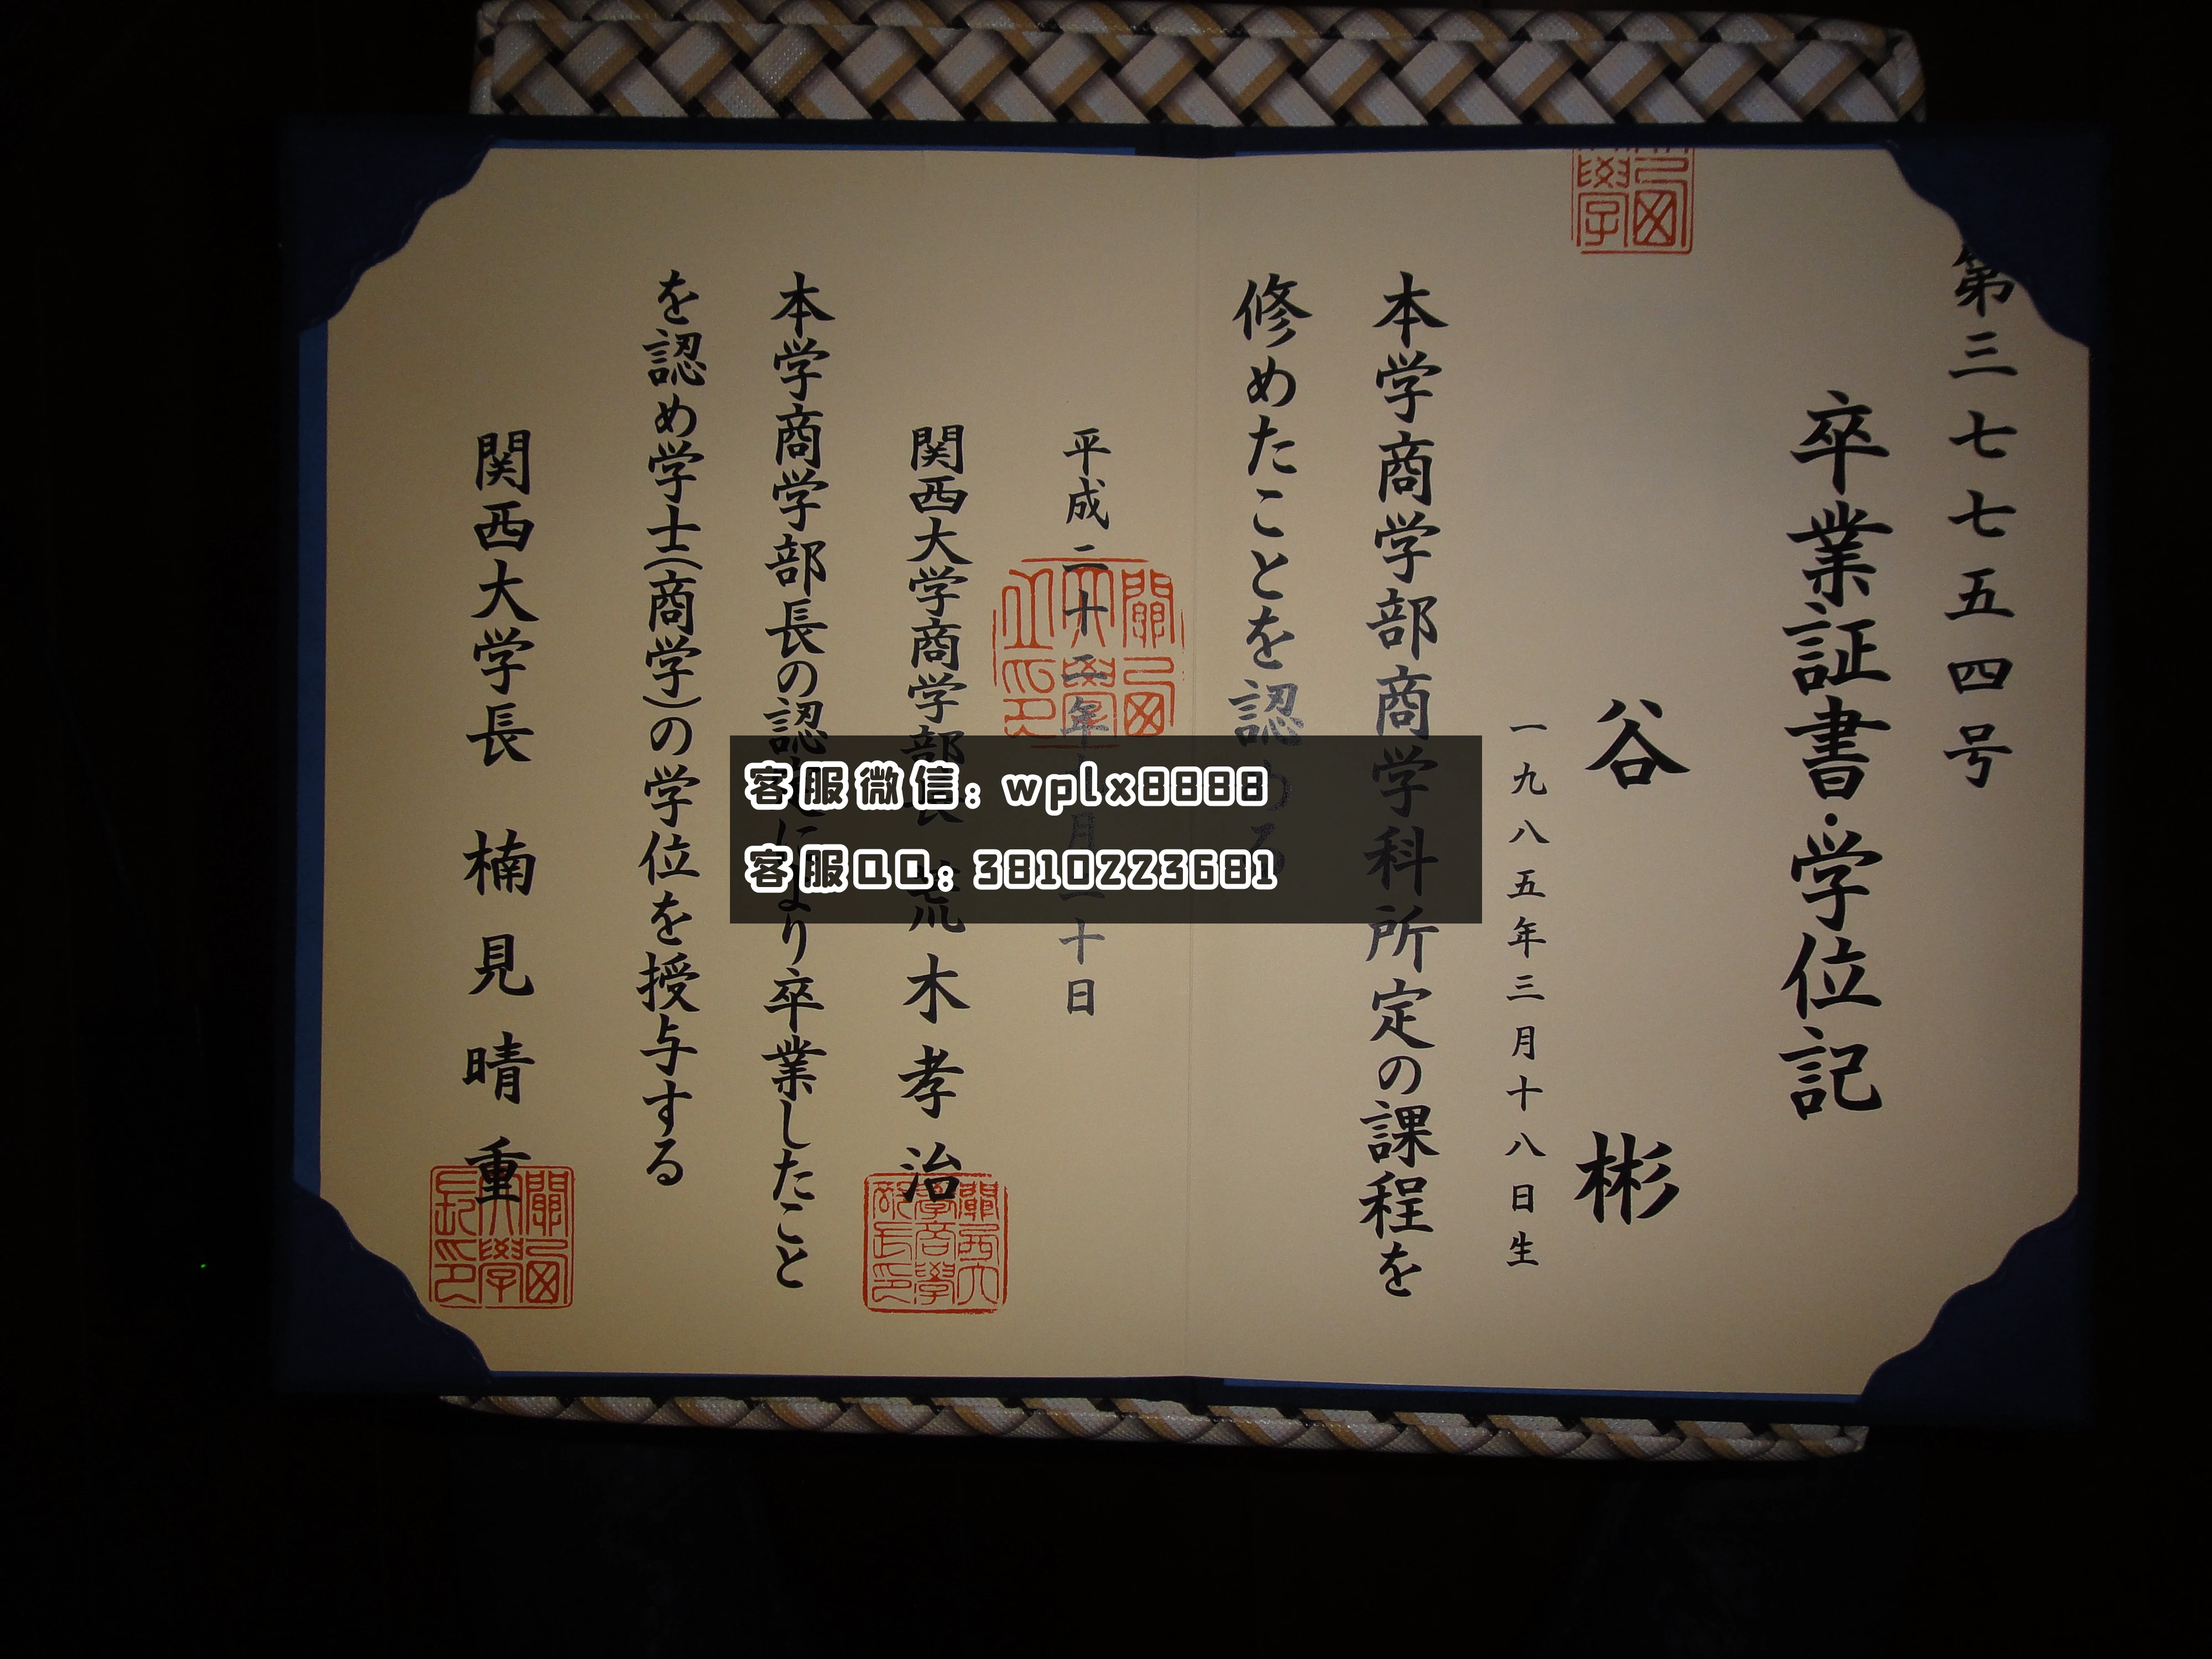 第三七七五四号
卒業証書・学位記
谷 彬
一九八五年三月十八日生
本学商学部商学科所定の課程を
修めたことを認める
平成二十二年 月二十日
関西大学商学部長 荒木孝治
本学商学部長の認定により卒業したこと
を認め学士(商学)の学位を授与する
関西大学長 楠見晴重
客服微信: wplx8888
客服QQ: 3810223681